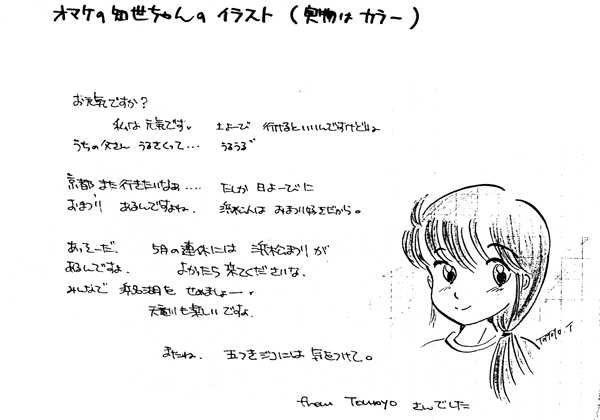 オマケの知世ちゃんの イラスト (実物は カラー)
お元気ですか?
私は 元気です。 土よーび 行けるといいんですけどね
うちの父さん うるさくって… うるうる
京都 また行きたいなぁ…. たしか 日よーびに
おまつり あるんですよね. 浜松人は おまつり好きだから。
あっそーだ. 5月の連休には 浜松まつりが
あるんですよ. よかったら 来てくださいな.
みんなで 浜名湖を せめましょー.
も楽しいですよ.
またね. には 気をつけて。
TOMOYO.T
from Tomoyo さんでした